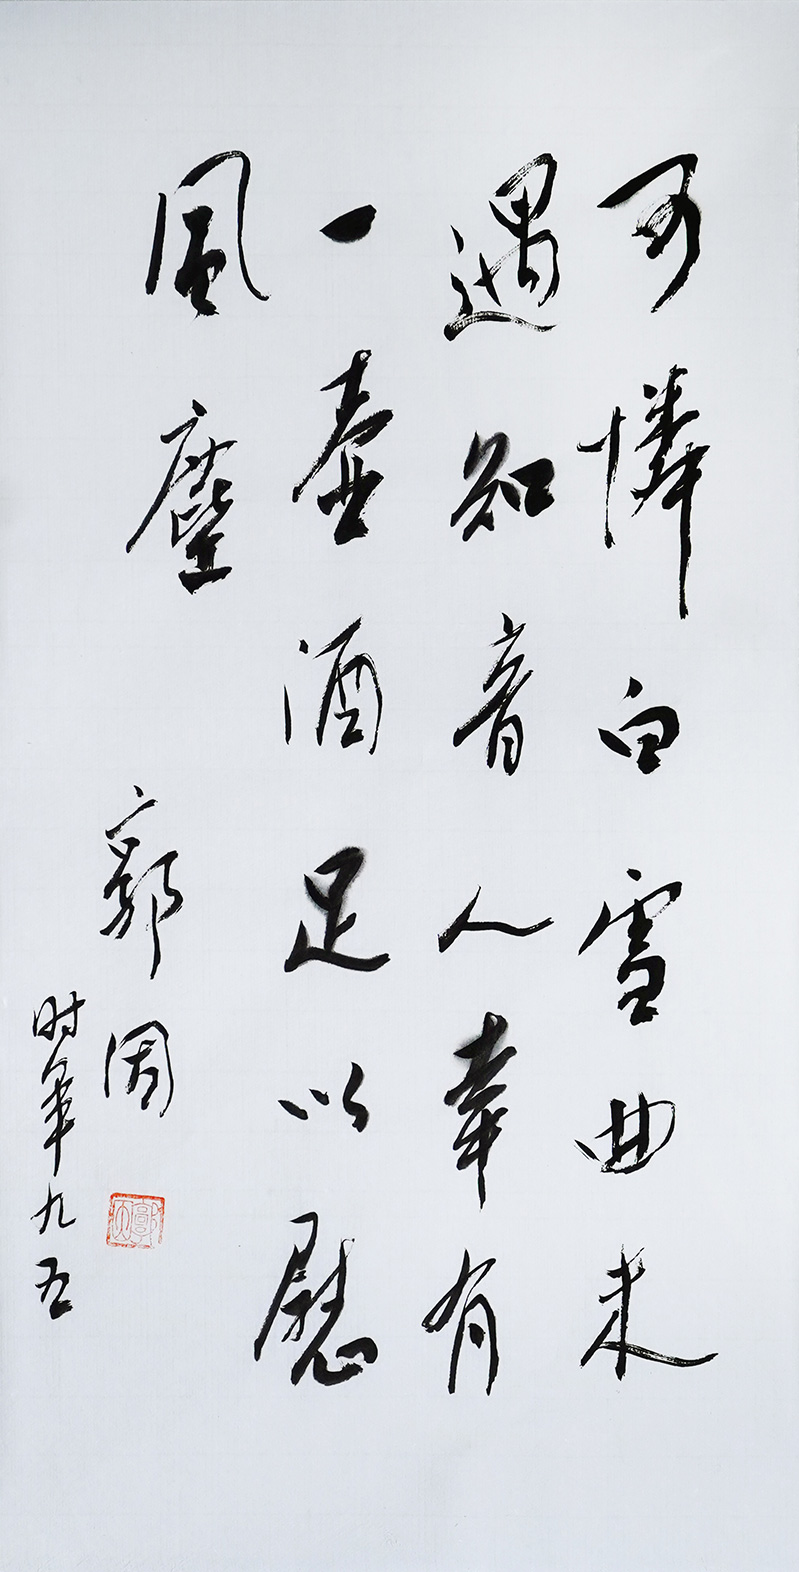 可憐白雪曲未
遇知音人幸有
一壺酒足以慰
風塵
郭因
时年九五